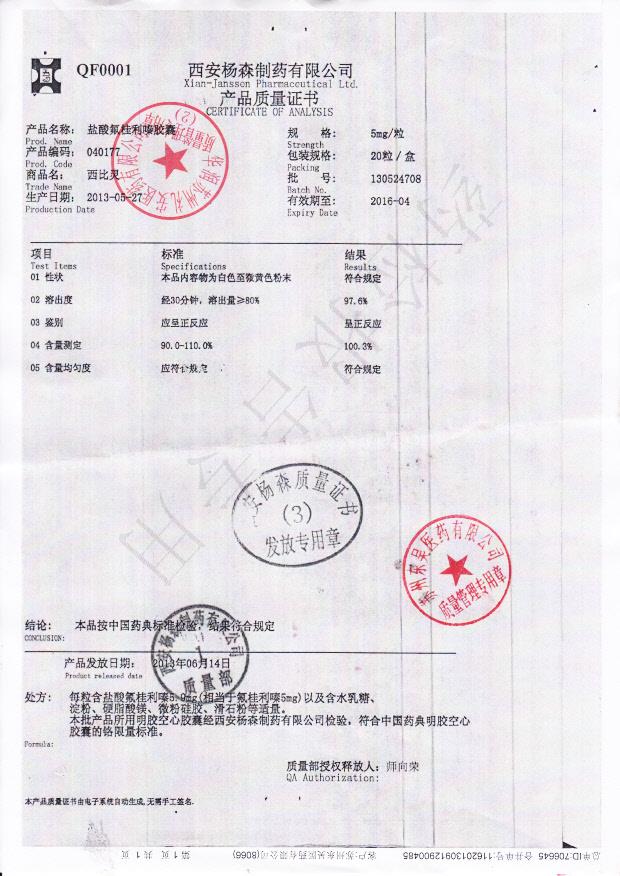 QF0001
西安杨森制药有限公司
Xian-Janssen Pharmaceutical Ltd.
产品质量证书
CERTIFICATE OF ANALYSIS
产品名称: 盐酸氟桂利嗪胶囊 规 格: 5mg/粒
Prod. Name Strength
产品编码: 040177 包装规格: 20粒/盒
Prod. Code Packing
商品名: 西比灵 批 号: 130524708
Trade Name Batch No.
生产日期: 2013-05-27 有效期至: 2016-04
Production Date Expiry Date
项目 标准 结果
Test Items Specifications Results
01 性状 本品内容物为白色至微黄色粉末 符合规定
02 溶出度 经30分钟,溶出量≥80% 97.6%
03 鉴别 应呈正反应 呈正反应
04 含量测定 90.0-110.0% 100.3%
05 含量均匀度 应符合规定 符合规定
药检报告专用
华润苏州礼安医药有限公司
质量管理专用章
(2)
西安杨森质量证书
(3)
发放专用章
苏州东吴医药有限公司
质量管理专用章
结论: 本品按中国药典标准检验,结果符合规定
CONCLUSION:
西安杨森制药有限公司
1
质量部
产品发放日期: 2013年06月14日
Product released date
处方: 每粒含盐酸氟桂利嗪5.9mg(相当于氟桂利嗪5mg)以及含水乳糖、
淀粉、硬脂酸镁、微粉硅胶、滑石粉等适量。
本批产品所用明胶空心胶囊经西安杨森制药有限公司检验,符合中国药典明胶空心
胶囊的铬限量标准。
Formula:
质量部授权释放人: 师向荣
QA Authorization:
本产品质量证书由电子系统自动生成,无需手工签名.
总单ID:706645 合并单号:1162013091290048​5 客户:苏州东吴医药有限公司(8066) 第 1 页 共 1 页